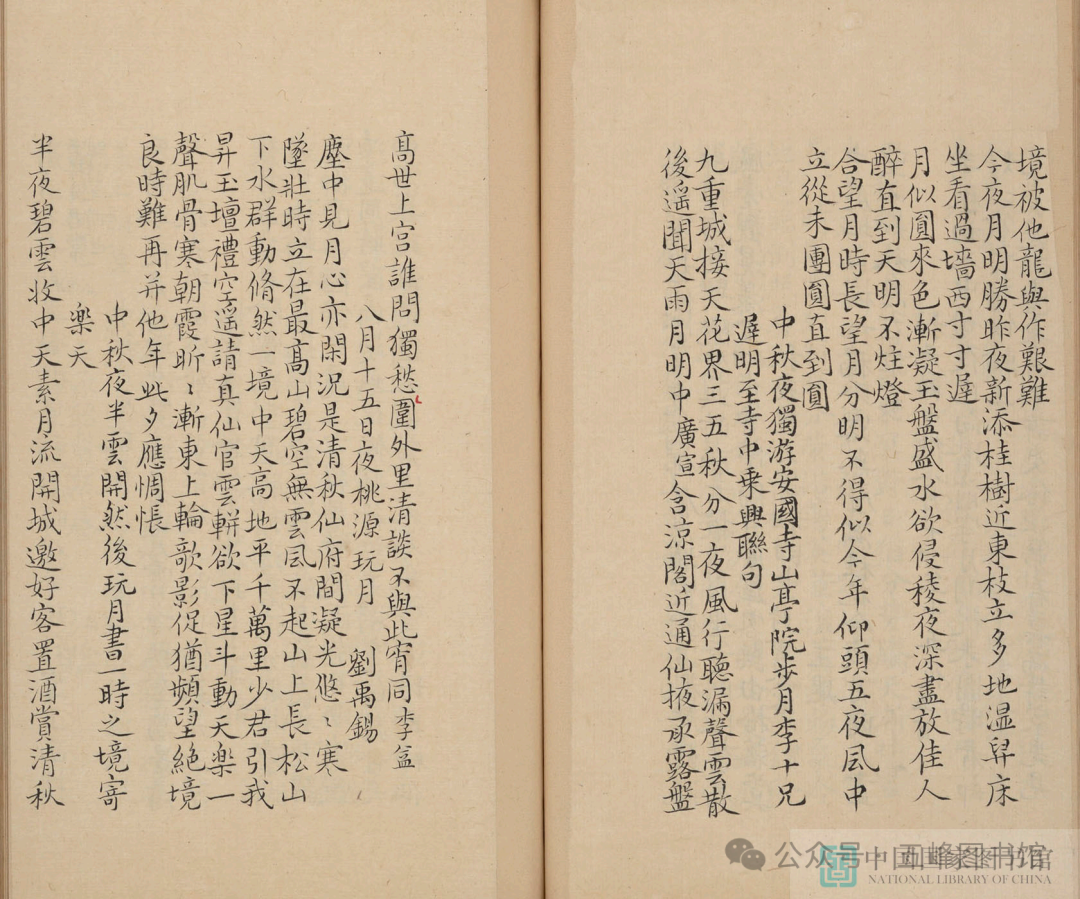 境被他龍與作艱難
今夜月明勝昨夜新添桂樹近東枝立多地温舁床
坐看過墻西寸寸遲
月似圓來色漸凝玉盤盛水欲侵稜夜深盡放佳人
醉直到天明不炷燈
合望月時長望月分明不得似今年仰頭五夜風中
立從未團圓直到圓
中秋夜獨游安國寺山亭院步月李十兄
遲明至寺中乗興聯句
九重城接天花界三五秋分一夜風行聴漏聲雲散
後遥聞天雨月明中廣宣含涼閣近通仙掖承露盤
高世上宫誰問獨愁圍外里清談不與此宵同李益
八月十五日夜桃源玩月 劉禹錫
塵中見月心亦閑況是清秋仙府間凝光悠〻寒
墜壯時立在最髙山碧空無雲風不起山上長松山
下水群動脩然一境中天高地平千萬里少君引我
昇玉壇禮空遥請真仙官雲軿欲下星斗動天楽一
聲肌骨寒朝霞昕〻漸東上輪歌影促猶頻望絶境
良時難再并他年此夕應惆悵
中秋夜半雲開然後玩月書一時之境寄
楽天
半夜碧雲收中天素月流開城邀好客置酒賞清秋
公众号·西峰图书馆
中国国家图书馆
NATIONAL LIBRARY OF CHINA